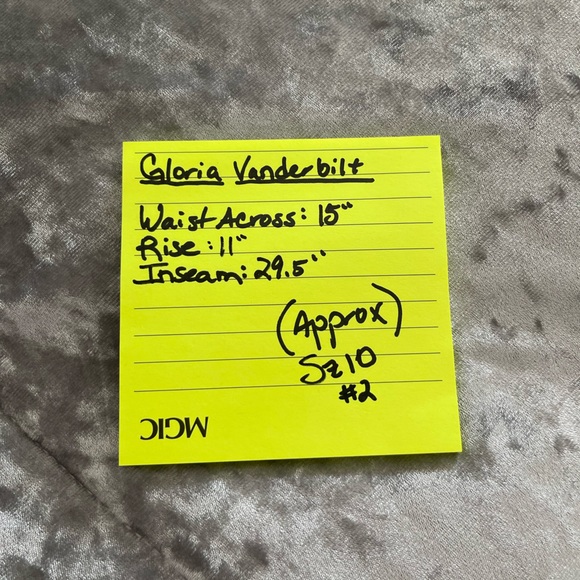 Gloria Vanderbilt
Waist Across: 15"
Rise: 11"
Inseam: 29.5"
(Approx)
Sz 10
#2
MGIC